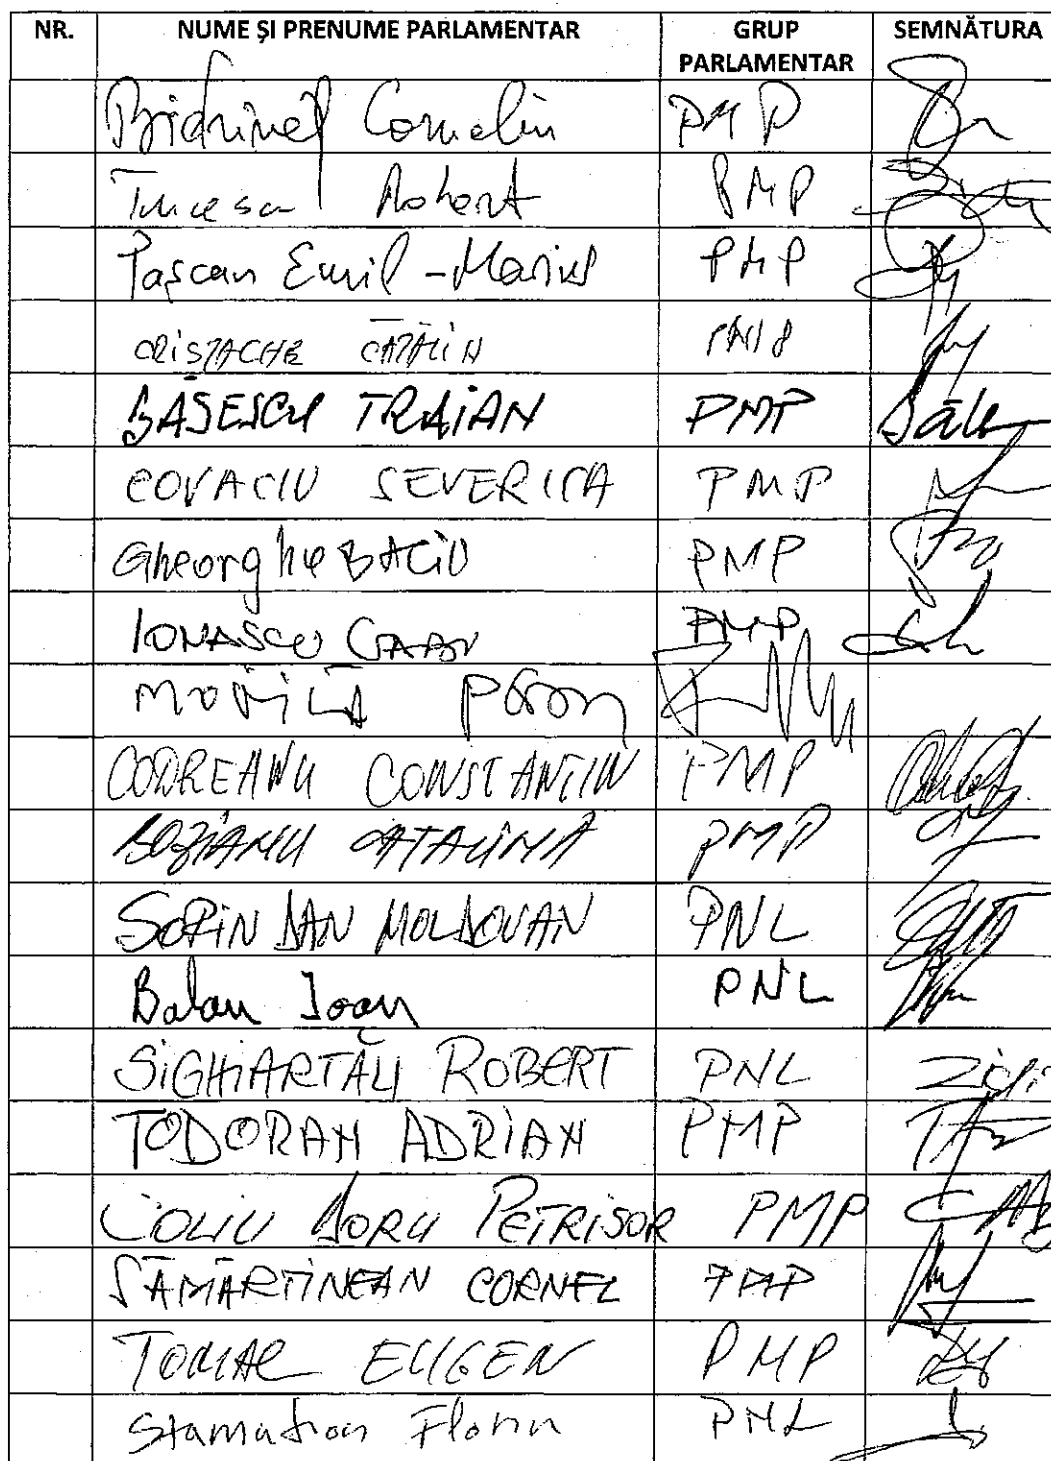 NR. NUME ȘI PRENUME PARLAMENTAR GRUP PARLAMENTAR SEMNĂTURA
Bichineț Corneliu PMP
Turcescu Robert PMP
Pașcan Emil-Marius PMP
CRISTACHE CĂTĂLIN PMP
BĂSESCU TRAIAN PMP
COVACIU SEVERICA PMP
Gheorghe BACIU PMP
IONAȘCU GABI PMP
MOVILĂ PETRU PMP
CODREANU CONSTANTIN PMP
BOZIANU CATALINA PMP
SORIN DAN MOLDOVAN PNL
Balan Ioan PNL
SIGHIARTĂU ROBERT PNL
TODORAN ADRIAN PMP
COLIU DORU PETRISOR PMP
SĂMĂRTINEAN CORNEL PMP
TOMAC EUGEN PMP
Stamatian Florin PNL